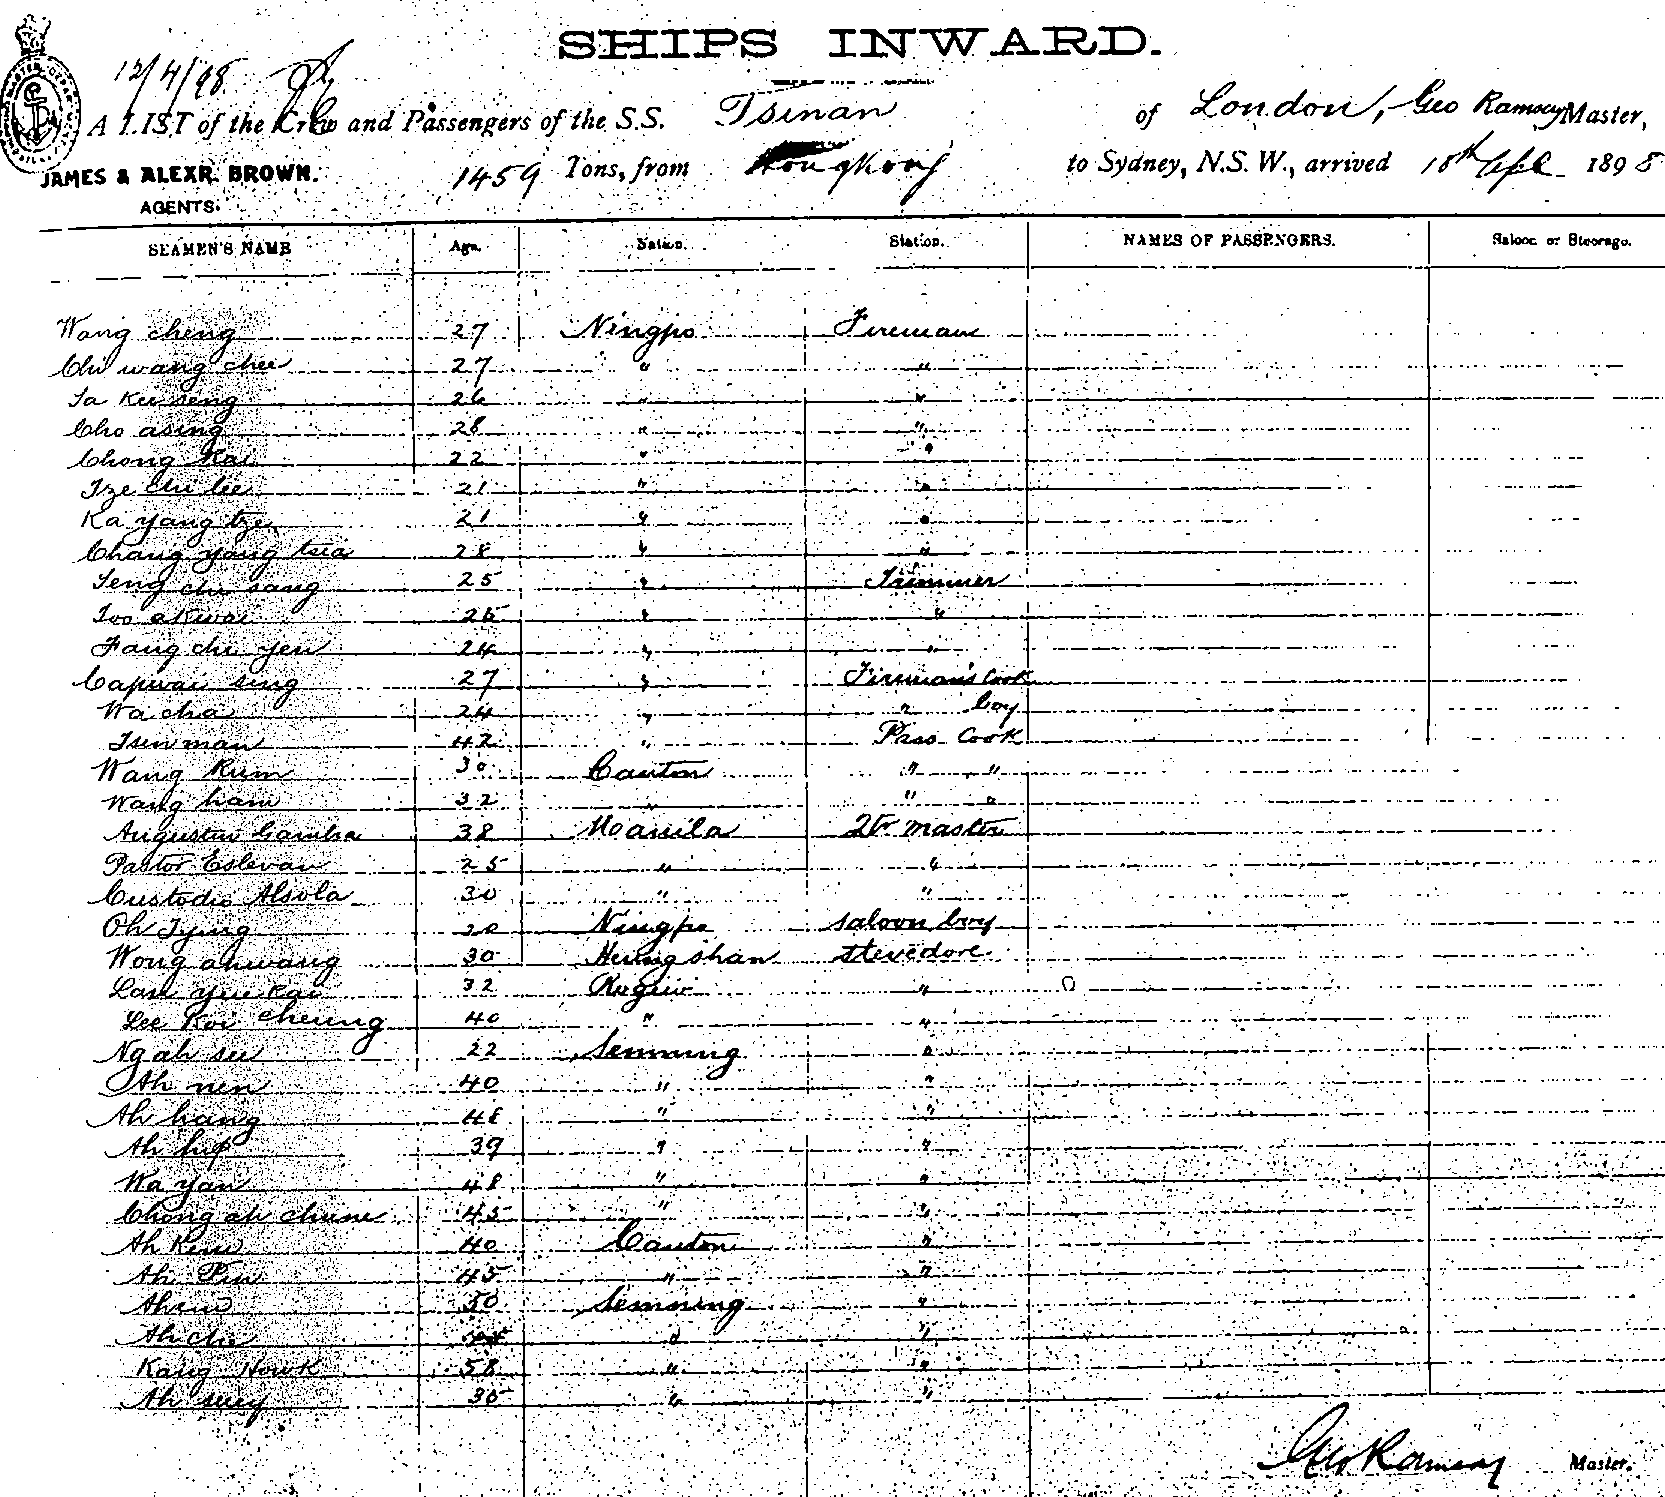 SHIPS INWARD.
12/4/98
A LIST of the Crew and Passengers of the S.S. Tsinan of London, Geo Ramsay Master,
JAMES & ALEXR. BROWN. 1459 Tons, from Hongkong to Sydney, N.S.W., arrived 18th Apl 1898
AGENTS.
SEAMEN'S NAME Age. Nation. Station. NAMES OF PASSENGERS. Saloon or Steerage.
Wang cheng 27 Ningpo Fireman
Chi wang chee 27 " "
Ta Kee seng 26 " "
Cho asing 28 " "
Chong Kai 22 " "
Tze chu lee 21 " "
Ka yang tze 21 " "
Chang yong tsia 28 " "
Teng chu sang 25 " Trimmer
Too akwai 25 " "
Fang chu yen 24 " "
Capwai sing 27 " Fireman's Cook
Wa cha 24 " " boy
Tsen man 42 " Pass Cook
Wang Kum 30 Canton " "
Wang ham 32 " " "
Augustin Gamba 38 Manila Qtr master
Pastor Eslevan 25 " "
Custodio Alsola 30 " "
Oh Tying 20 Ningpo saloon boy
Wong ahwang 30 Heungshan stevedore
Lau yue kai 32 "
Lee Koi cheung 40 " "
Ng ah see 22 Senning "
Ah nen 40 " "
Ah hang 48 " "
Ah hip 39 " "
Wa yan 48 " "
Chong ah chune 45 " "
Ah Kew 40 Canton "
Ah Pin 45 " "
50 Senning "
Ah chu " "
Kang Howk 58 " "
Ah suey 35 " "
Geo Ramsay Master.